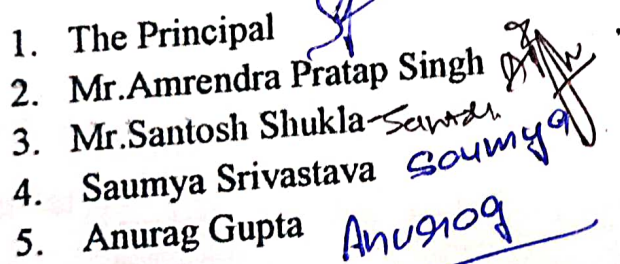 1. The Principal
2. Mr.Amrendra Pratap Singh
3. Mr.Santosh Shukla-
4. Saumya Srivastava Saumya
5. Anurag Gupta Anurag